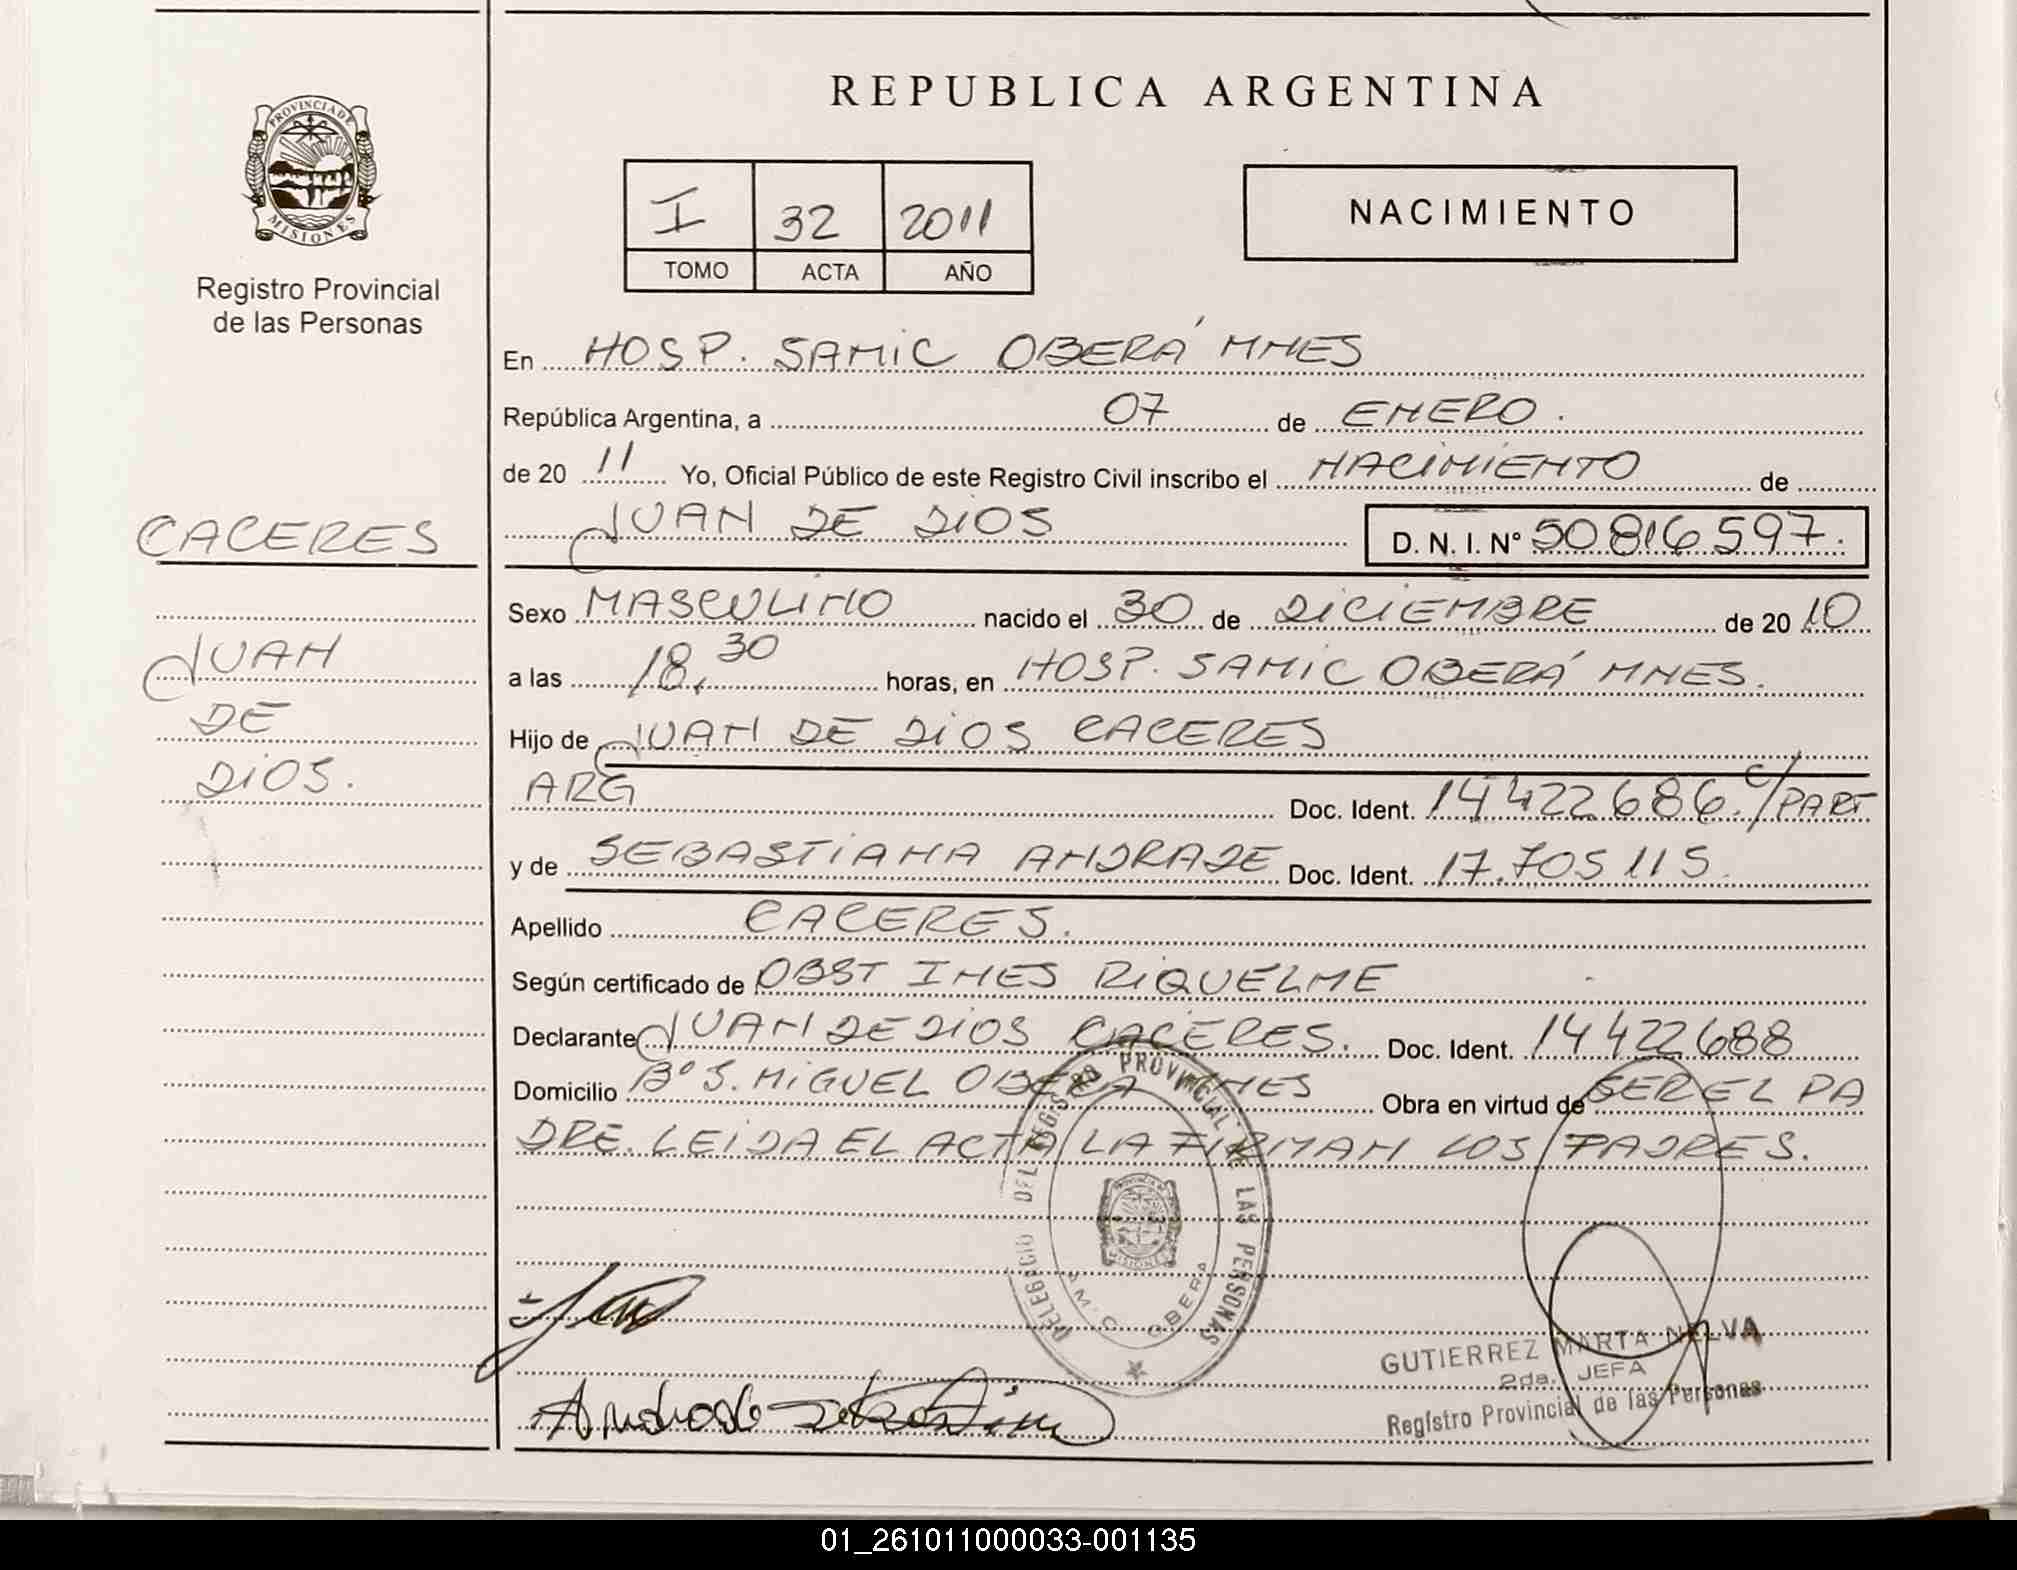 PROVINCIA DE
MISIONES
Registro Provincial
de las Personas
CACERES
JUAN
DE
DIOS.
REPUBLICA ARGENTINA
I 32 2011
TOMO ACTA AÑO
NACIMIENTO
En HOSP. SAMIC OBERÁ MNES
República Argentina, a 07 de ENERO.
de 20 11 Yo, Oficial Público de este Registro Civil inscribo el NACIMIENTO de
JUAN DE DIOS D. N. I. N° 50816597.
Sexo MASCULINO nacido el 30 de DICIEMBRE de 20 10
a las 18,30 horas, en HOSP. SAMIC OBERÁ MNES.
Hijo de JUAN DE DIOS CACERES
ARG Doc. Ident. 14422686. C/PART
y de SEBASTIANA ANDRADE Doc. Ident. 17.705115.
Apellido CACERES.
Según certificado de OBST INES RIQUELME
Declarante JUAN DE DIOS CACERES. Doc. Ident. 14422688
Domicilio B° S. MIGUEL OBERA MNES Obra en virtud de SER EL PA
DRE. LEIDA EL ACTA LA FIRMAN LOS PADRES.
DELEGACIO DEL REGISTRO PROVINCIAL DE LAS PERSONAS
OBERA
GUTIERREZ MARTA NELVA
2da. JEFA
Registro Provincial de las Personas
Andrade Sebastiana
01_261011000033-001135